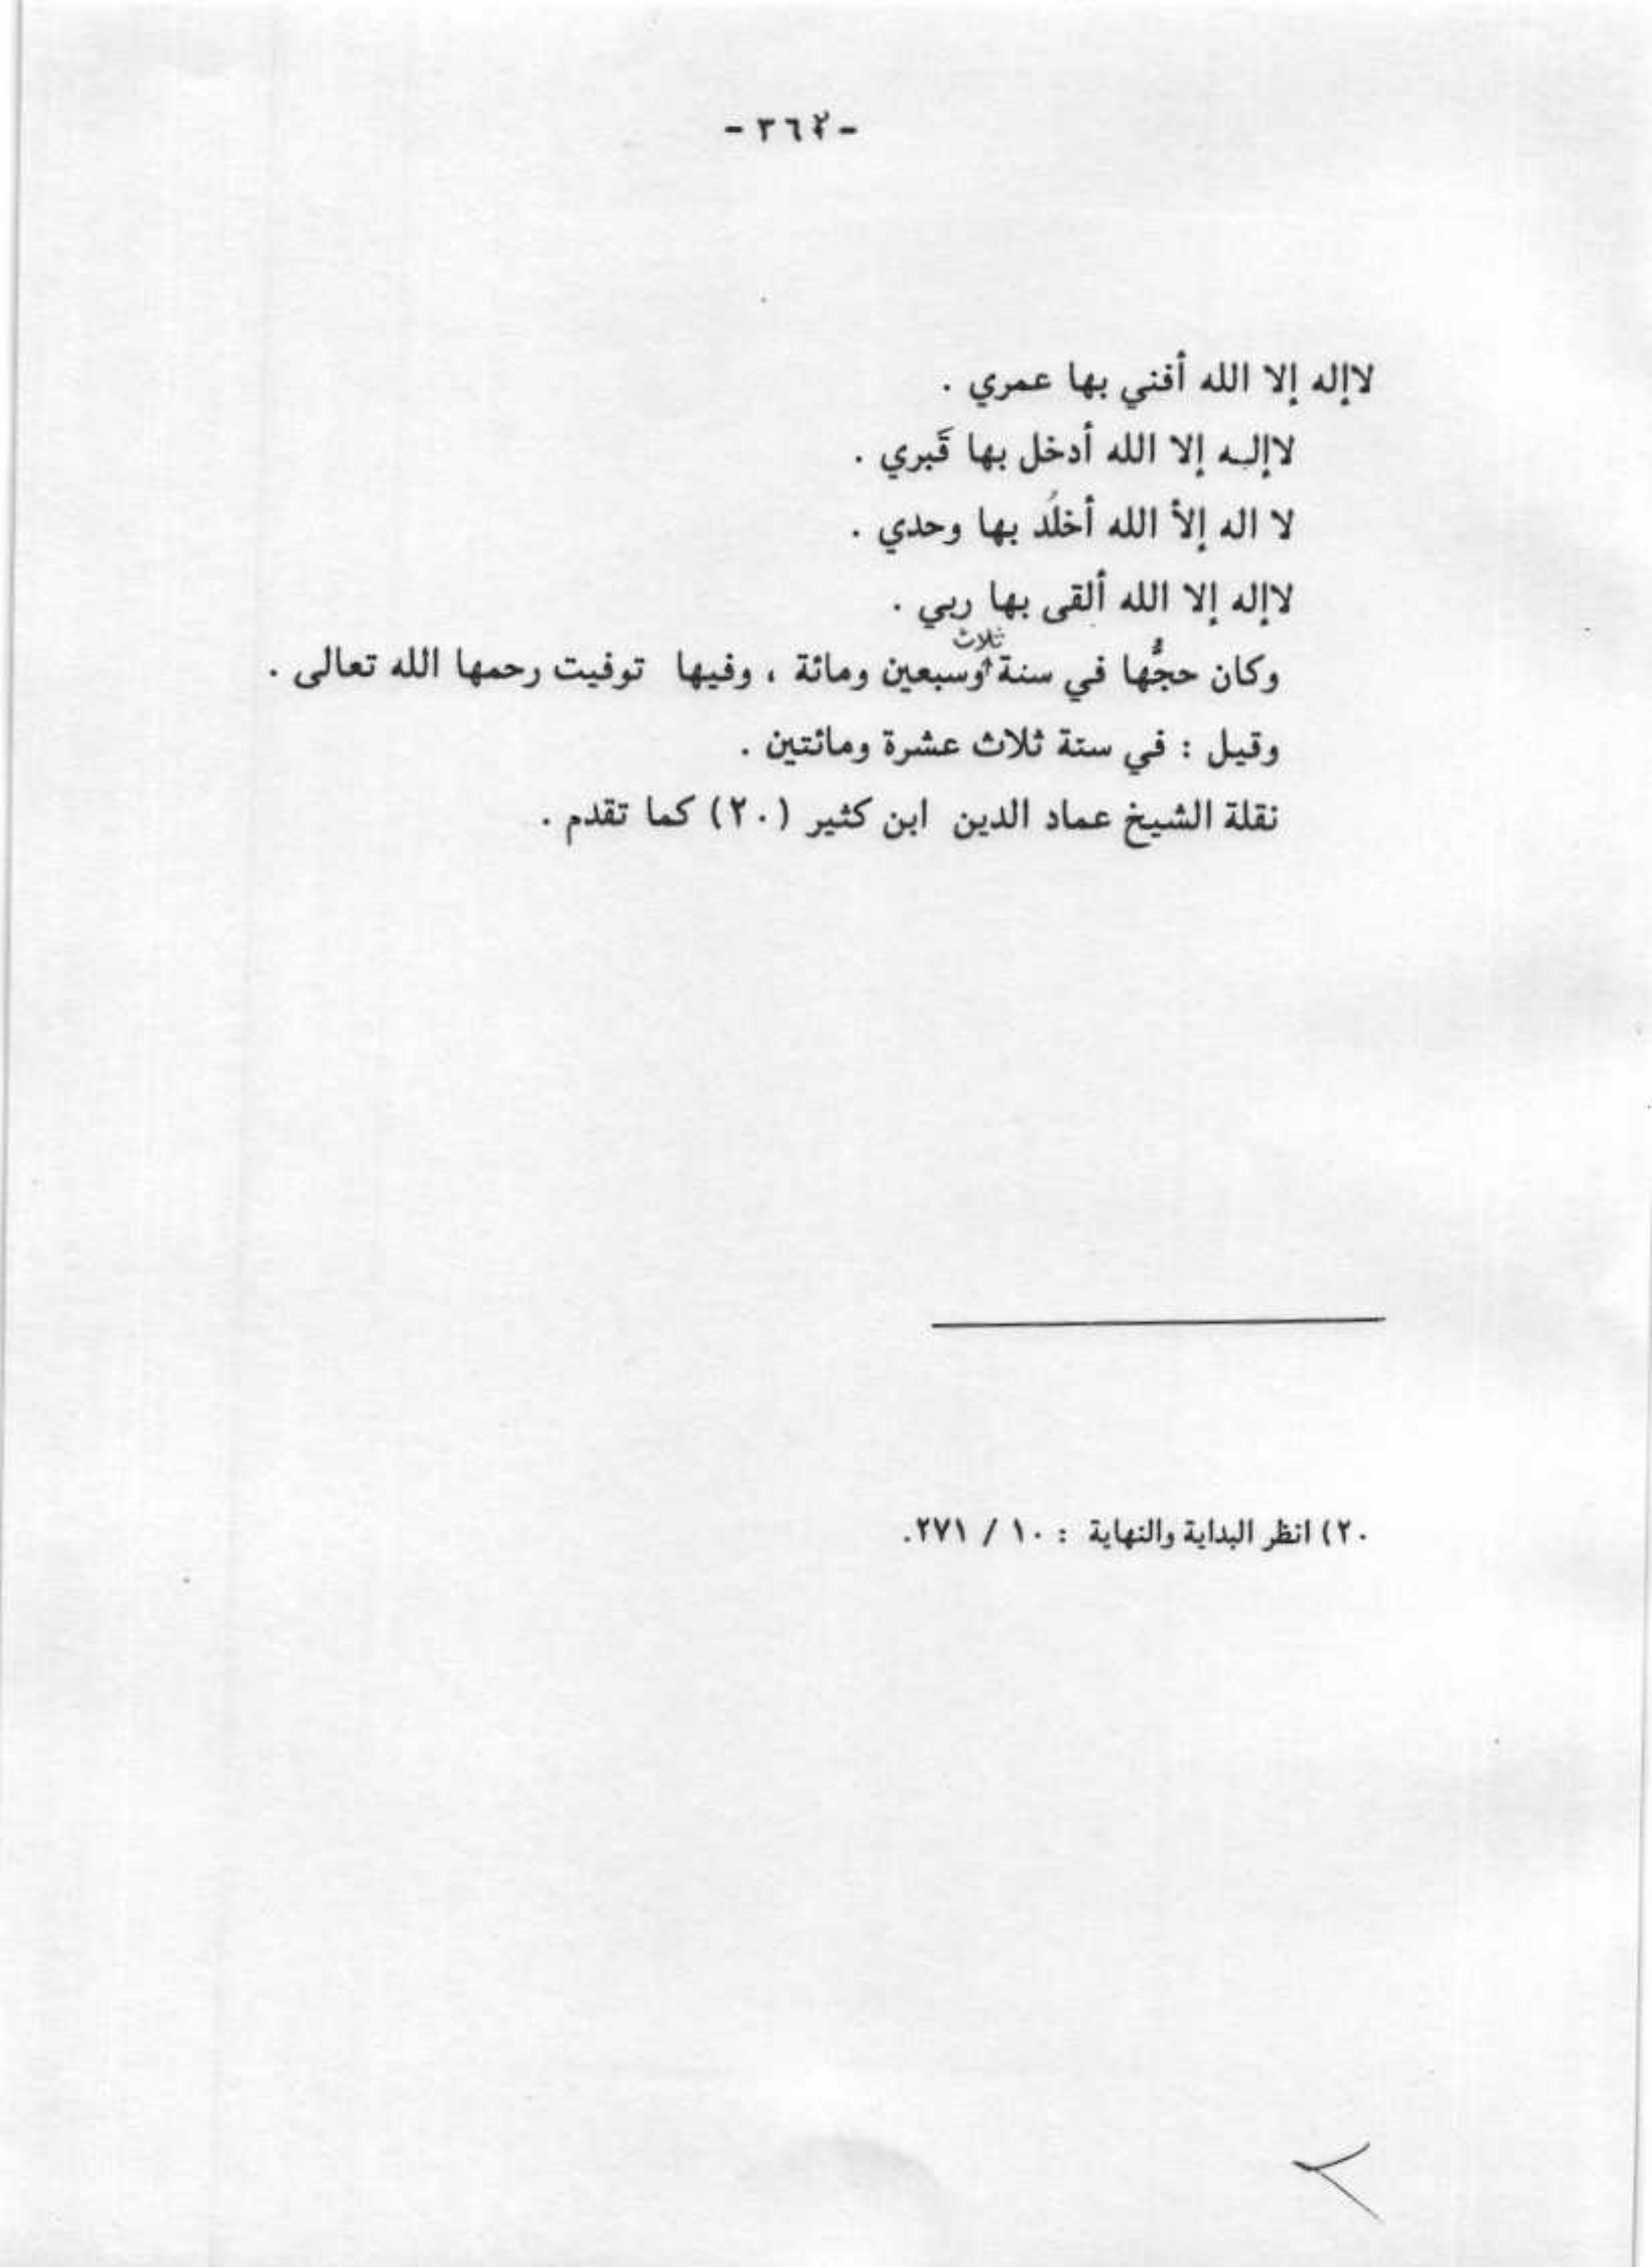 لاإله إلا الله أفني بها عمري .
لاإلـه إلا الله أدخل بها قَبري .
لا اله إلأ الله أخلُد بها وحدي .
لاإله إلا الله ألقى بها ربي .
وكان حجُّها في سنة ثلاث وسبعين ومائة ، وفيها توفيت رحمها الله تعالى .
وقيل : في سنة ثلاث عشرة ومائتين .
نقلة الشيخ عماد الدين ابن كثير (٢٠) كما تقدم .
٢٠) انظر البداية والنهاية : ١٠ / ٢٧١.